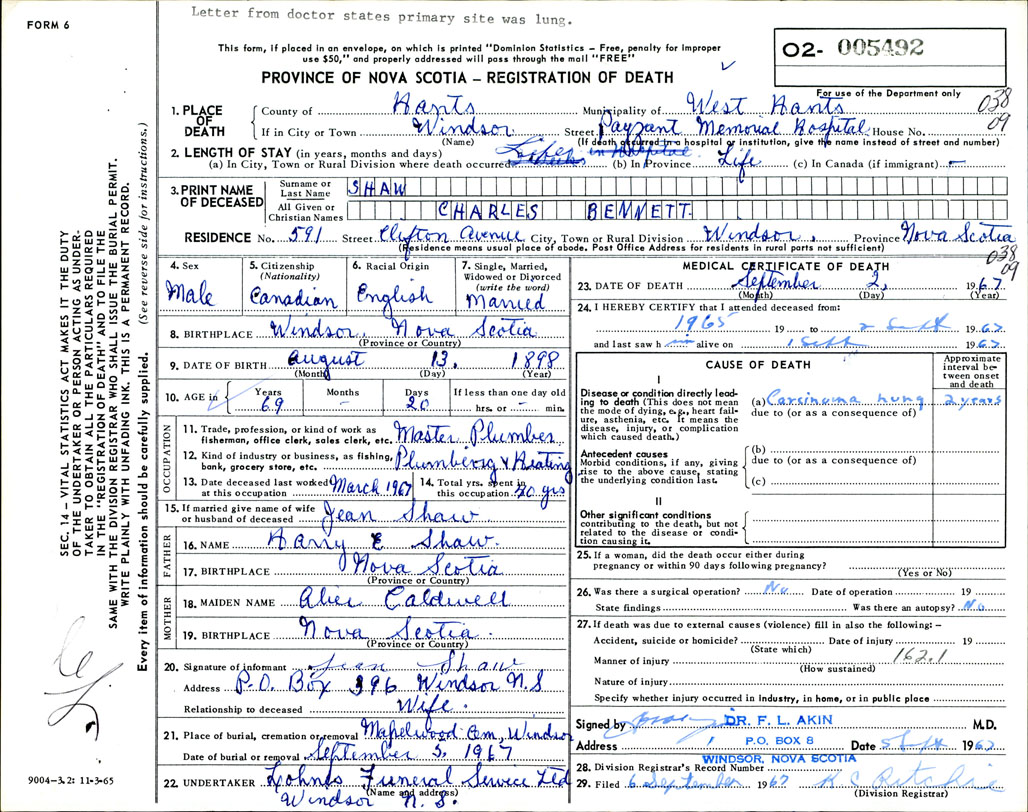 Letter from doctor states primary site was lung.
FORM 6
This form, if placed in an envelope, on which is printed "Dominion Statistics – Free, penalty for improper
use $50," and properly addressed will pass through the mail "FREE"
PROVINCE OF NOVA SCOTIA – REGISTRATION OF DEATH
02- 005492
For use of the Department only
038
09
1. PLACE OF DEATH
County of Hants Municipality of West Hants
If in City or Town Windsor Street Payzant Memorial Hospital House No.
(Name) (If death occurred in a hospital or institution, give the name instead of street and number)
2. LENGTH OF STAY (in years, months and days)
(a) In City, Town or Rural Division where death occurred in hospital (b) In Province Life (c) In Canada (if immigrant) –
3. PRINT NAME OF DECEASED
Surname or Last Name SHAW
All Given or Christian Names CHARLES BENNETT
RESIDENCE No. 591 Street Clifton Avenue City, Town or Rural Division Windsor, Province Nova Scotia
(Residence means usual place of abode. Post Office Address for residents in rural parts not sufficient)
038
09
4. Sex Male
5. Citizenship (Nationality) Canadian
6. Racial Origin English
7. Single, Married, Widowed or Divorced (write the word) Married
8. BIRTHPLACE Windsor, Nova Scotia
(Province or Country)
9. DATE OF BIRTH August 13, 1898
(Month) (Day) (Year)
10. AGE in Years 69 Months – Days 20 If less than one day old hrs. or – min.
OCCUPATION
11. Trade, profession, or kind of work as fisherman, office clerk, sales clerk, etc. Master Plumber
12. Kind of industry or business, as fishing, bank, grocery store, etc. Plumbing & Heating
13. Date deceased last worked at this occupation March 1967 14. Total yrs. spent in this occupation 40 yrs
15. If married give name of wife or husband of deceased Jean Shaw
FATHER
16. NAME Harry E Shaw.
17. BIRTHPLACE Nova Scotia
(Province or Country)
MOTHER
18. MAIDEN NAME Alice Caldwell
19. BIRTHPLACE Nova Scotia.
(Province or Country)
20. Signature of informant Jean Shaw
Address P.O. Box 396 Windsor N.S
Relationship to deceased Wife.
21. Place of burial, cremation or removal Maplewood Cem, Windsor
Date of burial or removal September 5, 1967
22. UNDERTAKER Lohnes Funeral Service Ltd
(Name and address)
Windsor N.S.
MEDICAL CERTIFICATE OF DEATH
23. DATE OF DEATH September 2, 1967
(Month) (Day) (Year)
24. I HEREBY CERTIFY that I attended deceased from:
1965 19 to 2 Sept 1967
and last saw h im alive on 1 Sept 1967
CAUSE OF DEATH
Approximate interval between onset and death
I
Disease or condition directly leading to death (This does not mean the mode of dying, e.g., heart failure, asthenia, etc. It means the disease, injury, or complication which caused death.)
(a) Carcinoma Lung 2 years
due to (or as a consequence of)
Antecedent causes
Morbid conditions, if any, giving rise to the above cause, stating the underlying condition last.
(b)
due to (or as a consequence of)
(c)
II
Other significant conditions
contributing to the death, but not related to the disease or condition causing it.
25. If a woman, did the death occur either during
pregnancy or within 90 days following pregnancy?
(Yes or No)
26. Was there a surgical operation? No Date of operation 19
State findings Was there an autopsy? No
27. If death was due to external causes (violence) fill in also the following: –
Accident, suicide or homicide? Date of injury 19
(State which)
Manner of injury 162.1
(How sustained)
Nature of injury
Specify whether injury occurred in industry, in home, or in public place
Signed by DR. F. L. AKIN M.D.
Address P.O. BOX 8 Date 5 Sept 1967
WINDSOR, NOVA SCOTIA
28. Division Registrar's Record Number
29. Filed 6 September 1967 K C Ritchie
(Division Registrar)
SEC. 14 – VITAL STATISTICS ACT MAKES IT THE DUTY
OF THE UNDERTAKER OR PERSON ACTING AS UNDER-
TAKER TO OBTAIN ALL THE PARTICULARS REQUIRED
IN THE "REGISTRATION OF DEATH" AND TO FILE THE
SAME WITH THE DIVISION REGISTRAR WHO SHALL ISSUE THE BURIAL PERMIT.
WRITE PLAINLY WITH UNFADING INK. THIS IS A PERMANENT RECORD.
Every item of information should be carefully supplied. (See reverse side for instructions.)
9004-3.2: 11-3-65